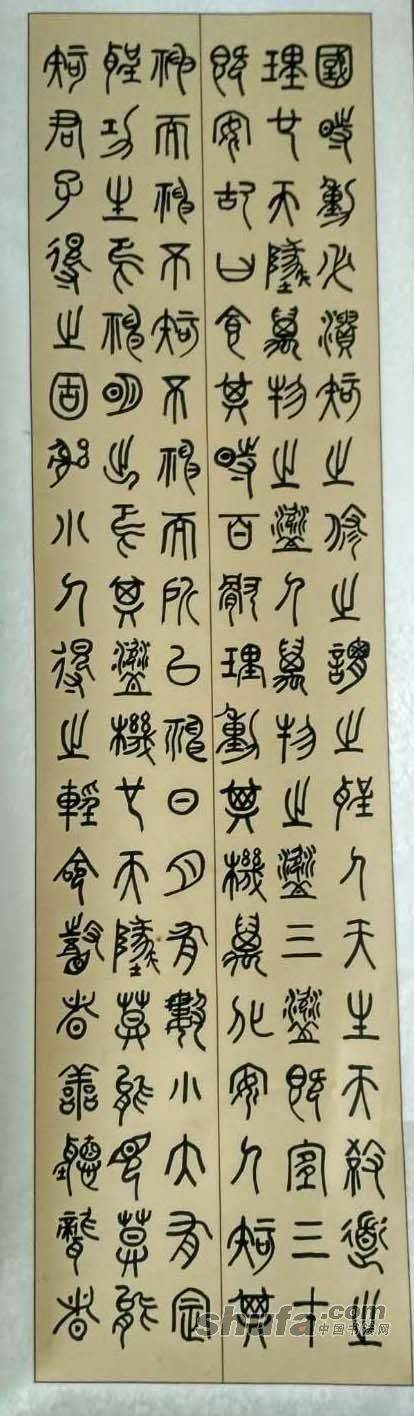 國時動必潰知之修之謂之聖人天生天殺道之
理也天地萬物之盜人萬物之盜三盜既宜三才
既安故曰食其時百骸理動其機萬化安人知其
神而神不知不神而所以神日月有數小大有定
聖功生焉神明出焉其盜機也天地莫能見莫能
知君子得之固躬小人得之輕命瞽者善聽聾者
shufa.com
中国书法网